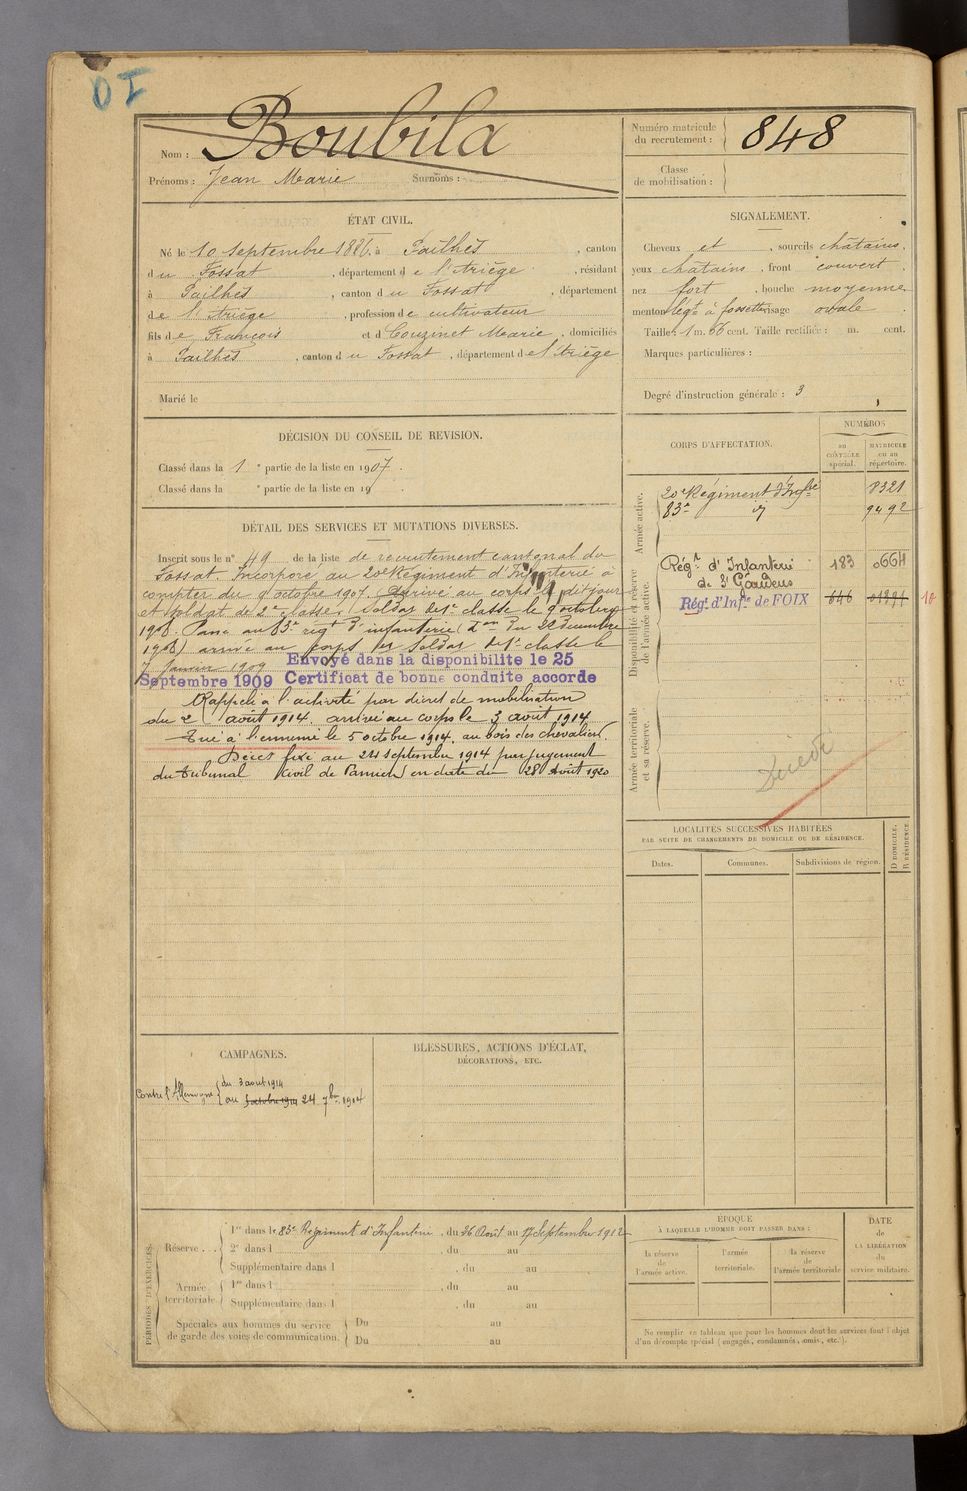 10
Nom : Boubila
Prénoms : Jean Marie Surnoms :
Numéro matricule du recrutement : 848
Classe de mobilisation :
ÉTAT CIVIL.
Né le 10 septembre 1886, à Pailhès, canton
du Fossat, département de l'Ariège, résidant
à Pailhès, canton du Fossat, département
de l'Ariège, profession de cultivateur
fils de François et d Couzinet Marie, domiciliés
à Pailhès, canton du Fossat, département de l'Ariège
Marié le
SIGNALEMENT.
Cheveux et, sourcils châtains,
yeux châtains, front couvert,
nez fort, bouche moyenne
menton à fossette visage ovale.
Taille : 1 m. 66 cent. Taille rectifiée : m. cent.
Marques particulières :
Degré d'instruction générale : 3
DÉCISION DU CONSEIL DE REVISION.
Classé dans la 1e partie de la liste en 1907.
Classé dans la e partie de la liste en 19 .
DÉTAIL DES SERVICES ET MUTATIONS DIVERSES.
Inscrit sous le n° 49 de la liste de recrutement cantonal du
Fossat. Incorporé au 20e Régiment d'Infanterie à
compter du 9 octobre 1907. Arrivé au corps le dit jour
et soldat de 2e classe. Soldat de 1e classe le 9 octobre
1908. Passé au 83e régt d'infanterie (Don du 22 Décembre
1908) arrivé au corps et soldat de 1e classe le
7 Janvier 1909 Envoyé dans la disponibilité le 25
Septembre 1909 Certificat de bonne conduite accordé
Rappelé à l'activité par décret de mobilisation
du 2 août 1914. arrivé au corps le 3 août 1914
Tué à l'ennemi le 5 octobre 1914. au bois des chevaliers.
Décès fixé au 24 septembre 1914 par jugement
du tribunal civil de Pamiers en date du 28 Août 1920
CORPS D'AFFECTATION.
NUMÉROS
au CONTRÔLE spécial.
MATRICULE ou au répertoire.
Armée active.
20e Régiment d'Infie 8321
83e id 9492
Disponibilité et réserve de l'armée active.
Régt d'Infanterie 183 0664
de St Gaudens
Régt d'Infie de FOIX 646 01291 10
Armée territoriale et sa réserve.
Décédé
LOCALITÉS SUCCESSIVES HABITÉES
PAR SUITE DE CHANGEMENTS DE DOMICILE OU DE RÉSIDENCE.
Dates. Communes. Subdivisions de région. D DOMICILE, R RÉSIDENCE.
CAMPAGNES.
Contre l'Allemagne du 3 août 1914
au 5 octobre 1914 24 7bre 1914
BLESSURES, ACTIONS D'ÉCLAT,
DÉCORATIONS, ETC.
PÉRIODES D'EXERCICES.
Réserve . . . 1re dans le 83e Régiment d'Infanterie, du 26 Août au 17 Septembre 1912
2e dans l , du au
Supplémentaire dans l , du au
Armée territoriale. 1re dans l , du au
Supplémentaire dans l , du au
Spéciales aux hommes du service Du au
de garde des voies de communication. Du au
ÉPOQUE
À LAQUELLE L'HOMME DOIT PASSER DANS :
la réserve de l'armée active.
l'armée territoriale.
la réserve de l'armée territoriale
DATE de LA LIBÉRATION du service militaire.
Ne remplir ce tableau que pour les hommes dont les services font l'objet
d'un décompte spécial (engagés, condamnés, omis, etc.).